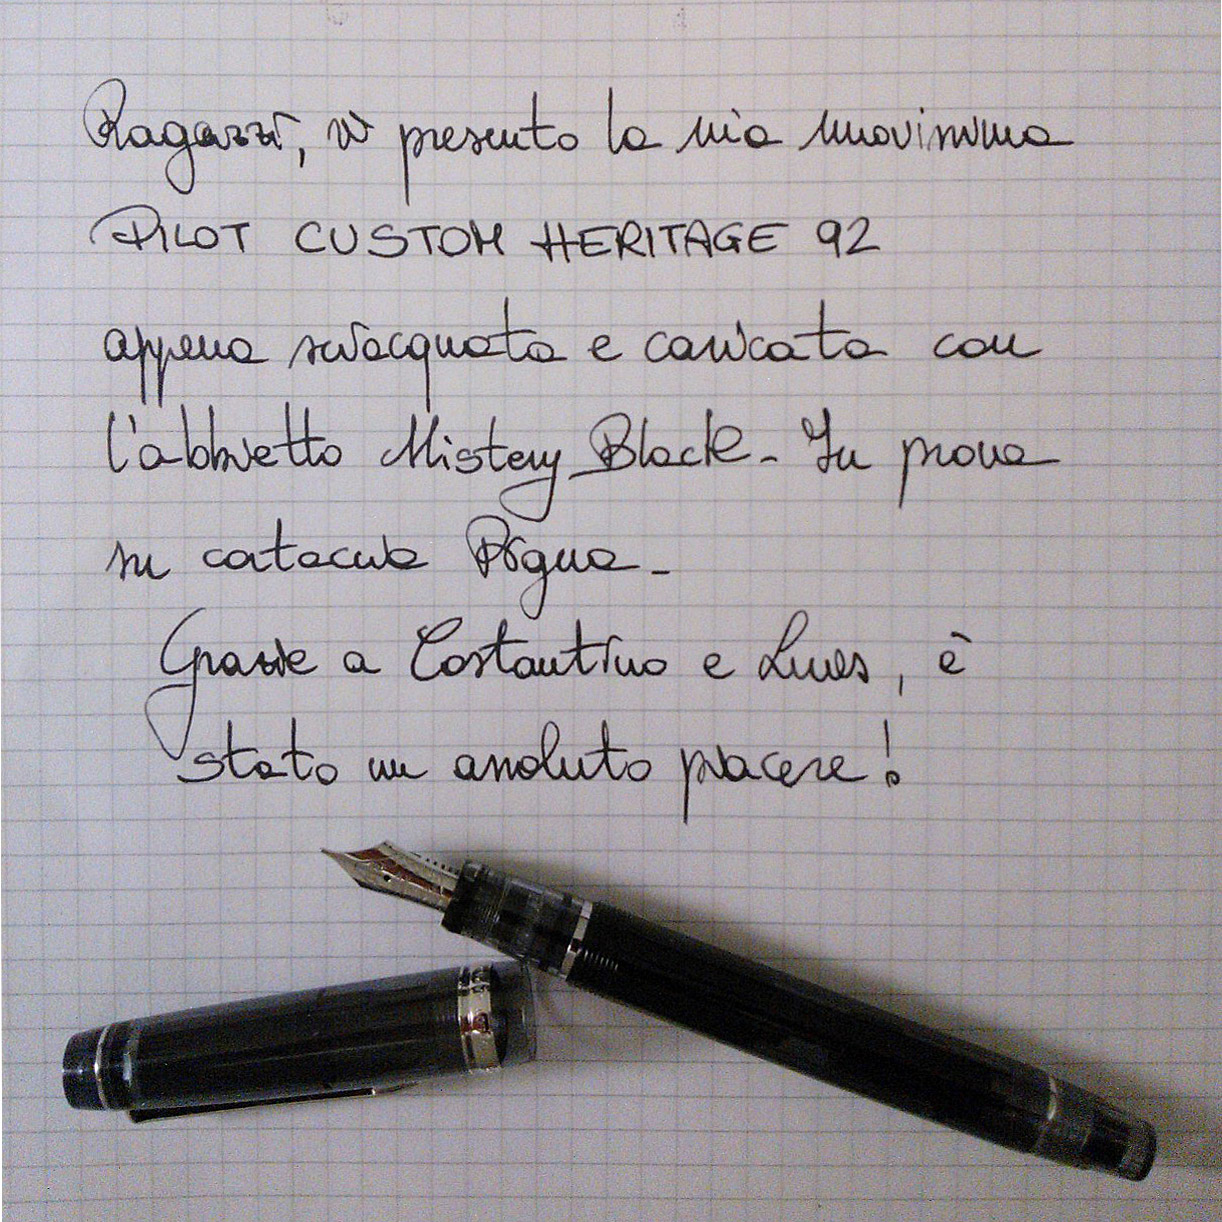 Ragazzi, vi presento la mia nuovissima
PILOT CUSTOM HERITAGE 92
appena sciacquata e caricata con
l'abbietto Mistery Black - In prova
su cartaccia Pigna -
Grazie a Costantino e , è
stato un assoluto piacere!